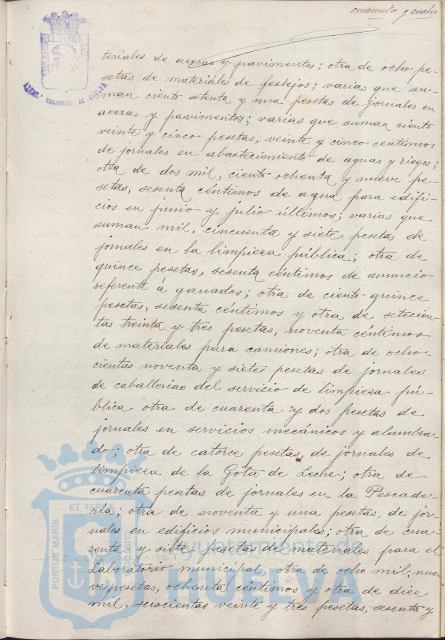 cuarenta y cuatro
teriales de aceras y pavimentos; otra de ocho pe-
setas de materiales de festejos; varias que su-
man ciento setenta y una pesetas de jornales en
aceras y pavimentos; varias que suman ciento
veinte y cinco pesetas, veinte y cinco centimos
de jornales en abastecimiento de aguas y riegos;
otra de dos mil, ciento ochenta y nueve pe-
setas, sesenta céntimos de agua para edifi-
cios en junio y julio últimos; varias que
suman mil, cincuenta y siete pesetas de
jornales en la limpieza pública; otra de
quince pesetas, sesenta céntimos de anuncio
referente a ganados; otra de ciento quince
pesetas, sesenta céntimos y otra de setecien-
tas treinta y tres pesetas, noventa céntimos
de materiales para camiones; otra de ocho-
cientas noventa y siete pesetas de jornales
de caballerias del servicio de limpieza pú-
blica otra de cuarenta y dos pesetas de
jornales en servicios mecánicos y alumbra-
do; otra de catorce pesetas, de jornales de
limpieza de la Gota de Leche; otra de
cuarenta pesetas de jornales en la Pescade-
ría; otra de noventa y una pesetas, de jor-
nales en edificios municipales; otra de cua-
renta y siete pesetas de materiales para el
Laboratorio municipal, otra de ocho mil, nue-
ve pesetas, ochenta céntimos y otra de diez
mil, seiscientas veinte y tres pesetas, sesenta y
PORTUS MARIS
Ayuntamiento de
HUELVA